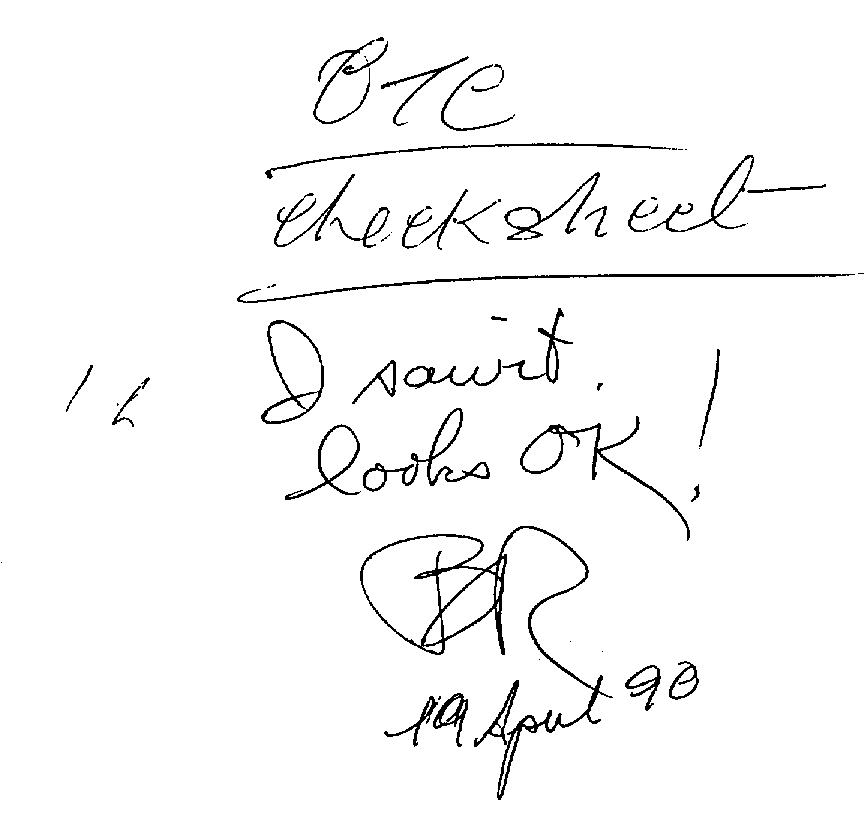 OTC
checksheet
I saw it.
looks OK!
BR
19 April 90